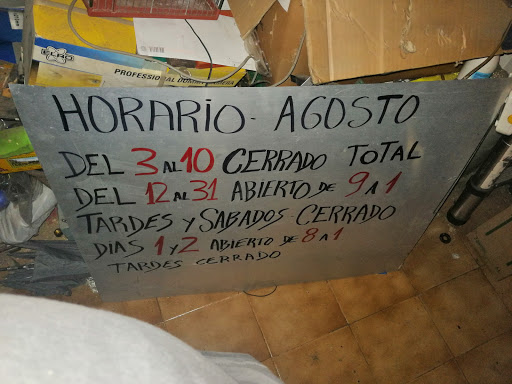 ELRO
PROFESSIONAL
HORARIO - AGOSTO
DEL 3 AL 10 CERRADO TOTAL
DEL 12 AL 31 ABIERTO DE 9 A 1
TARDES Y SABADOS - CERRADO
DIAS 1 Y 2 ABIERTO DE 8 A 1
TARDES CERRADO